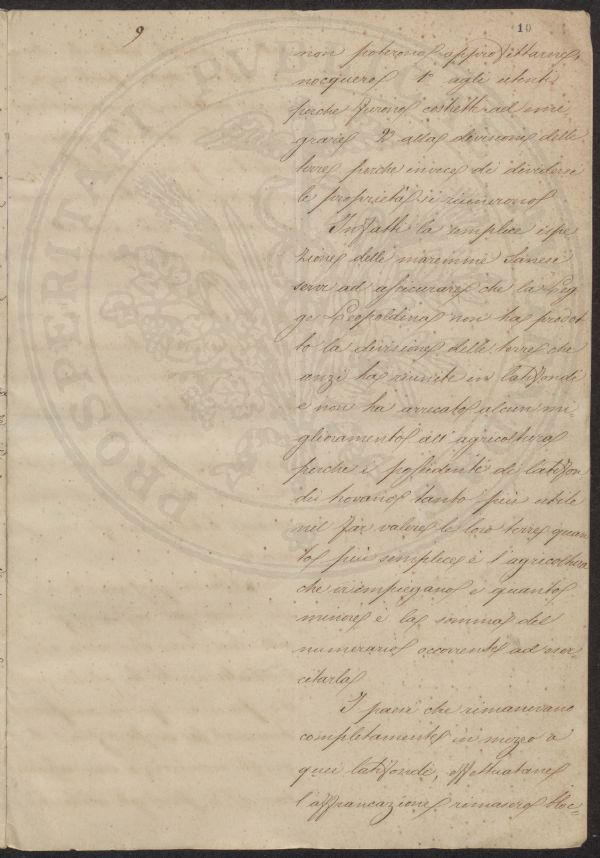 9
10
non poterono approfittarne,
nocquero 1° agli utenti
perche furono costretti ad emi
grare 2 alla divisione delle
terre perche invece di dividersi
le proprietà si riunirono
Infatti la semplice ispe
zione delle maremme Sanesi
servì ad assicurare che la Leg
ge Leopoldina non ha prodot
to la divisione delle terre che
anzi ha riunite in latifondi
e non ha arrecato alcun mi
glioramento all' agricoltura
perche i possidenti di latifon
di trovano tanto più utile
nel far valere le loro terre quan
to più semplice è l'agricoltura
che vi impiegano e quanto
minore è la somma del
numerario occorrente ad eser=
citarla
I paesi che rimanevano
completamente in mezzo a
quei latifondi, effettuatane
l'affrancazione rimasero bloc=
PROSPERITATI PVBLI